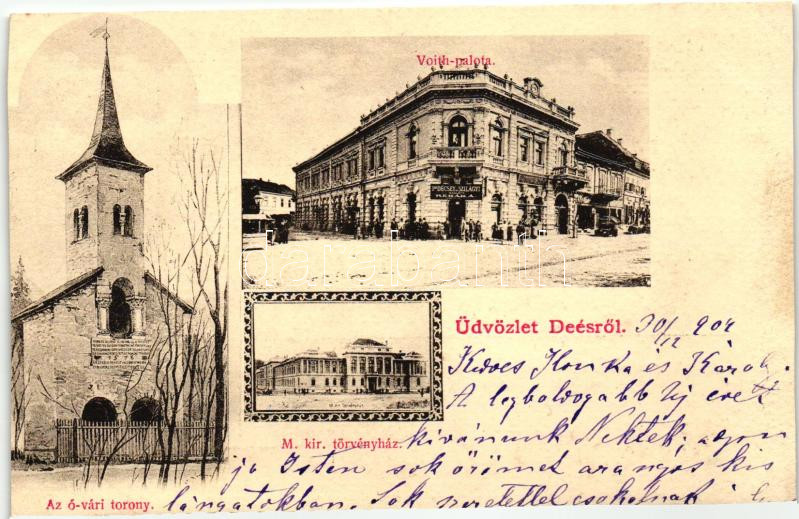 Voith-palota.
Dr DÉCSEY és SZILÁGYI
Üdvözlet Deésről. 30/12 904
Kedves Ilonka és Károly
A legboldogabb új évet
M. kir. törvényház. kívánunk Nektek, a
jó Isten sok örömet aranyos kis
Az ó-vári torony. lángatokban. Sok szeretettel csókolnak
darabanth